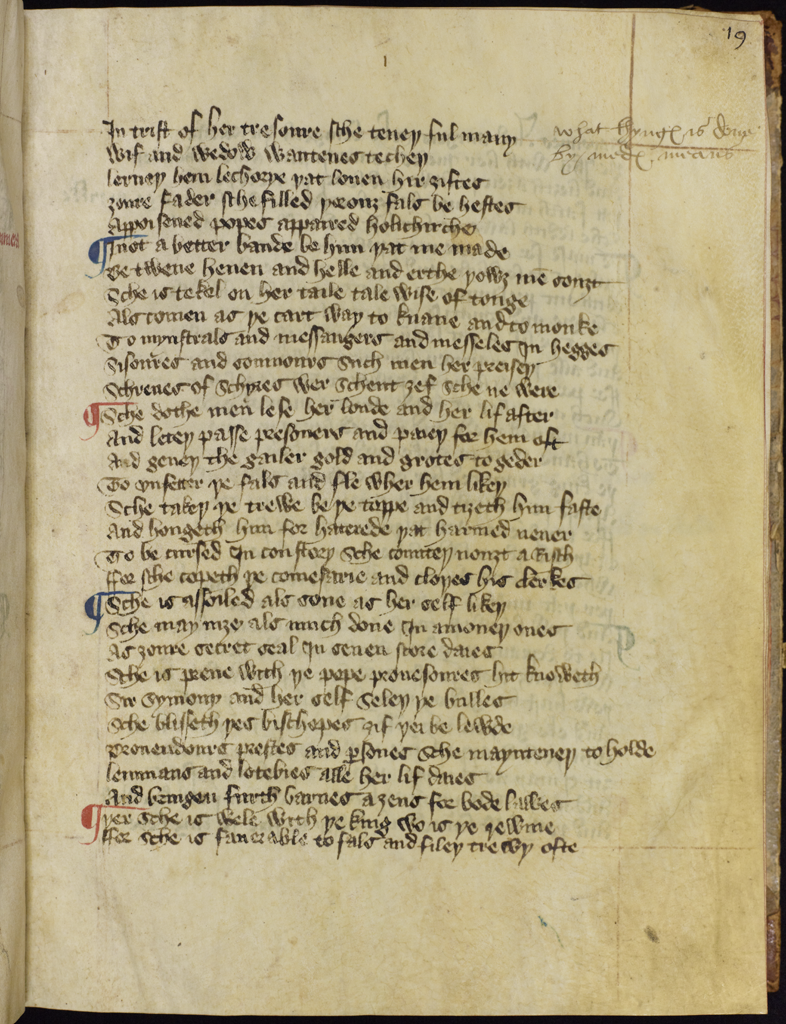 19
In trist of her tresoure sche teneþ ful many
what thyngs is done
by med. meanes
Wif and wedow wantenes techeþ
lerneþ hem lechorye þat louen hir ȝiftes
ȝoure fader sche filled þorouȝ fals be hestes
Appoisened popes appaired holichirche
¶ I not a better baude be him þat me made
Be twene heuen and helle and erthe þowȝ me souȝt
Sche is tekel on her taile tale wise of tonge
Als comen as þe cart way to knaue and to monke
To mynstrals and messangers and meseles In hegges
Sisoures and somnours Such men her preiseþ
Schreues of Schyres wer Schent ȝef sche ne were
¶ Sche dothe men lese her londe and her lif after
And leteþ passe presoners and paieþ for hem oft
And geueþ the gailer gold and grotes to geder
To vnfetter þe fals and fle wher hem likeþ
Sche takeþ þe trewe be þe toppe and tiȝeth him faste
And hongeth him for haterede þat harmed neuer
To be cursed In constory Sche counteþ nouȝt a Risch
ffor sche copeth þe comesarie and cloþes his clerkes
¶ Sche is assoiled als sone as her self likeþ
Sche may niȝe als much done In a moneþ ones
As ȝoure secret seal In seuen score daies
Sche is preue with þe pope prouesoures hit knoweth
Sir Symony and her self Seleþ þe bulles
Sche blisseth þes bischopes ȝif þei be lewde
Prouendours prestes and persones Sche maynteneþ to holde
lemmans and lotebies alle her lif daies
And bringen furth barnes aȝens for bode lawes
¶ þer Sche is wele with þe king wo is þe rewme
ffor Sche is fauerable to fals and fileþ trewþ ofte